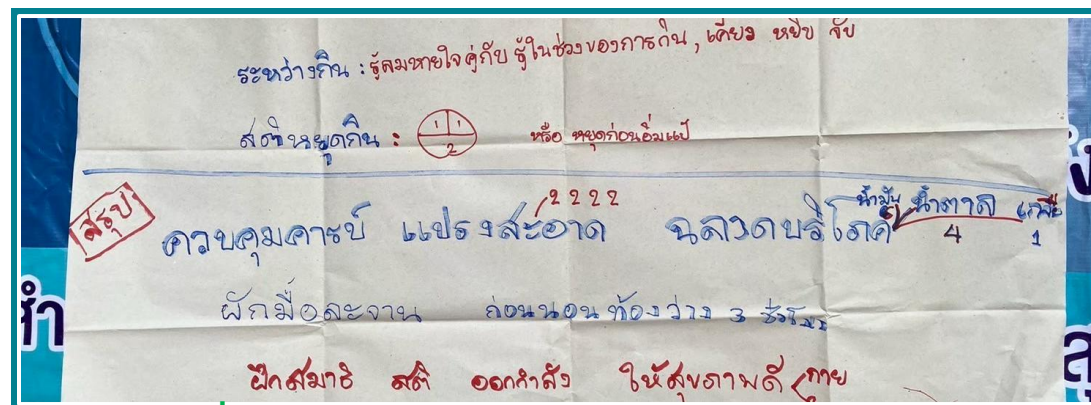 ระหว่างกิน : รู้ลมหายใจคู่กับ รู้ในช่วงของการกิน, เคี้ยว หยิบ จับ
สติหยุดกิน : 1 1 2 หรือ หยุดก่อนอิ่มแป้
สรุป
2 2 2 2
ควบคุมคาร์บ แปรงสะอาด ฉลาดบริโภค น้ำมัน 6 น้ำตาล 4 เกลือ 1
ผักมื้อละจาน ก่อนนอนท้องว่าง 3 ชั่วโมง
ฝึกสมาธิ สติ ออกกำลัง ให้สุขภาพดี กาย